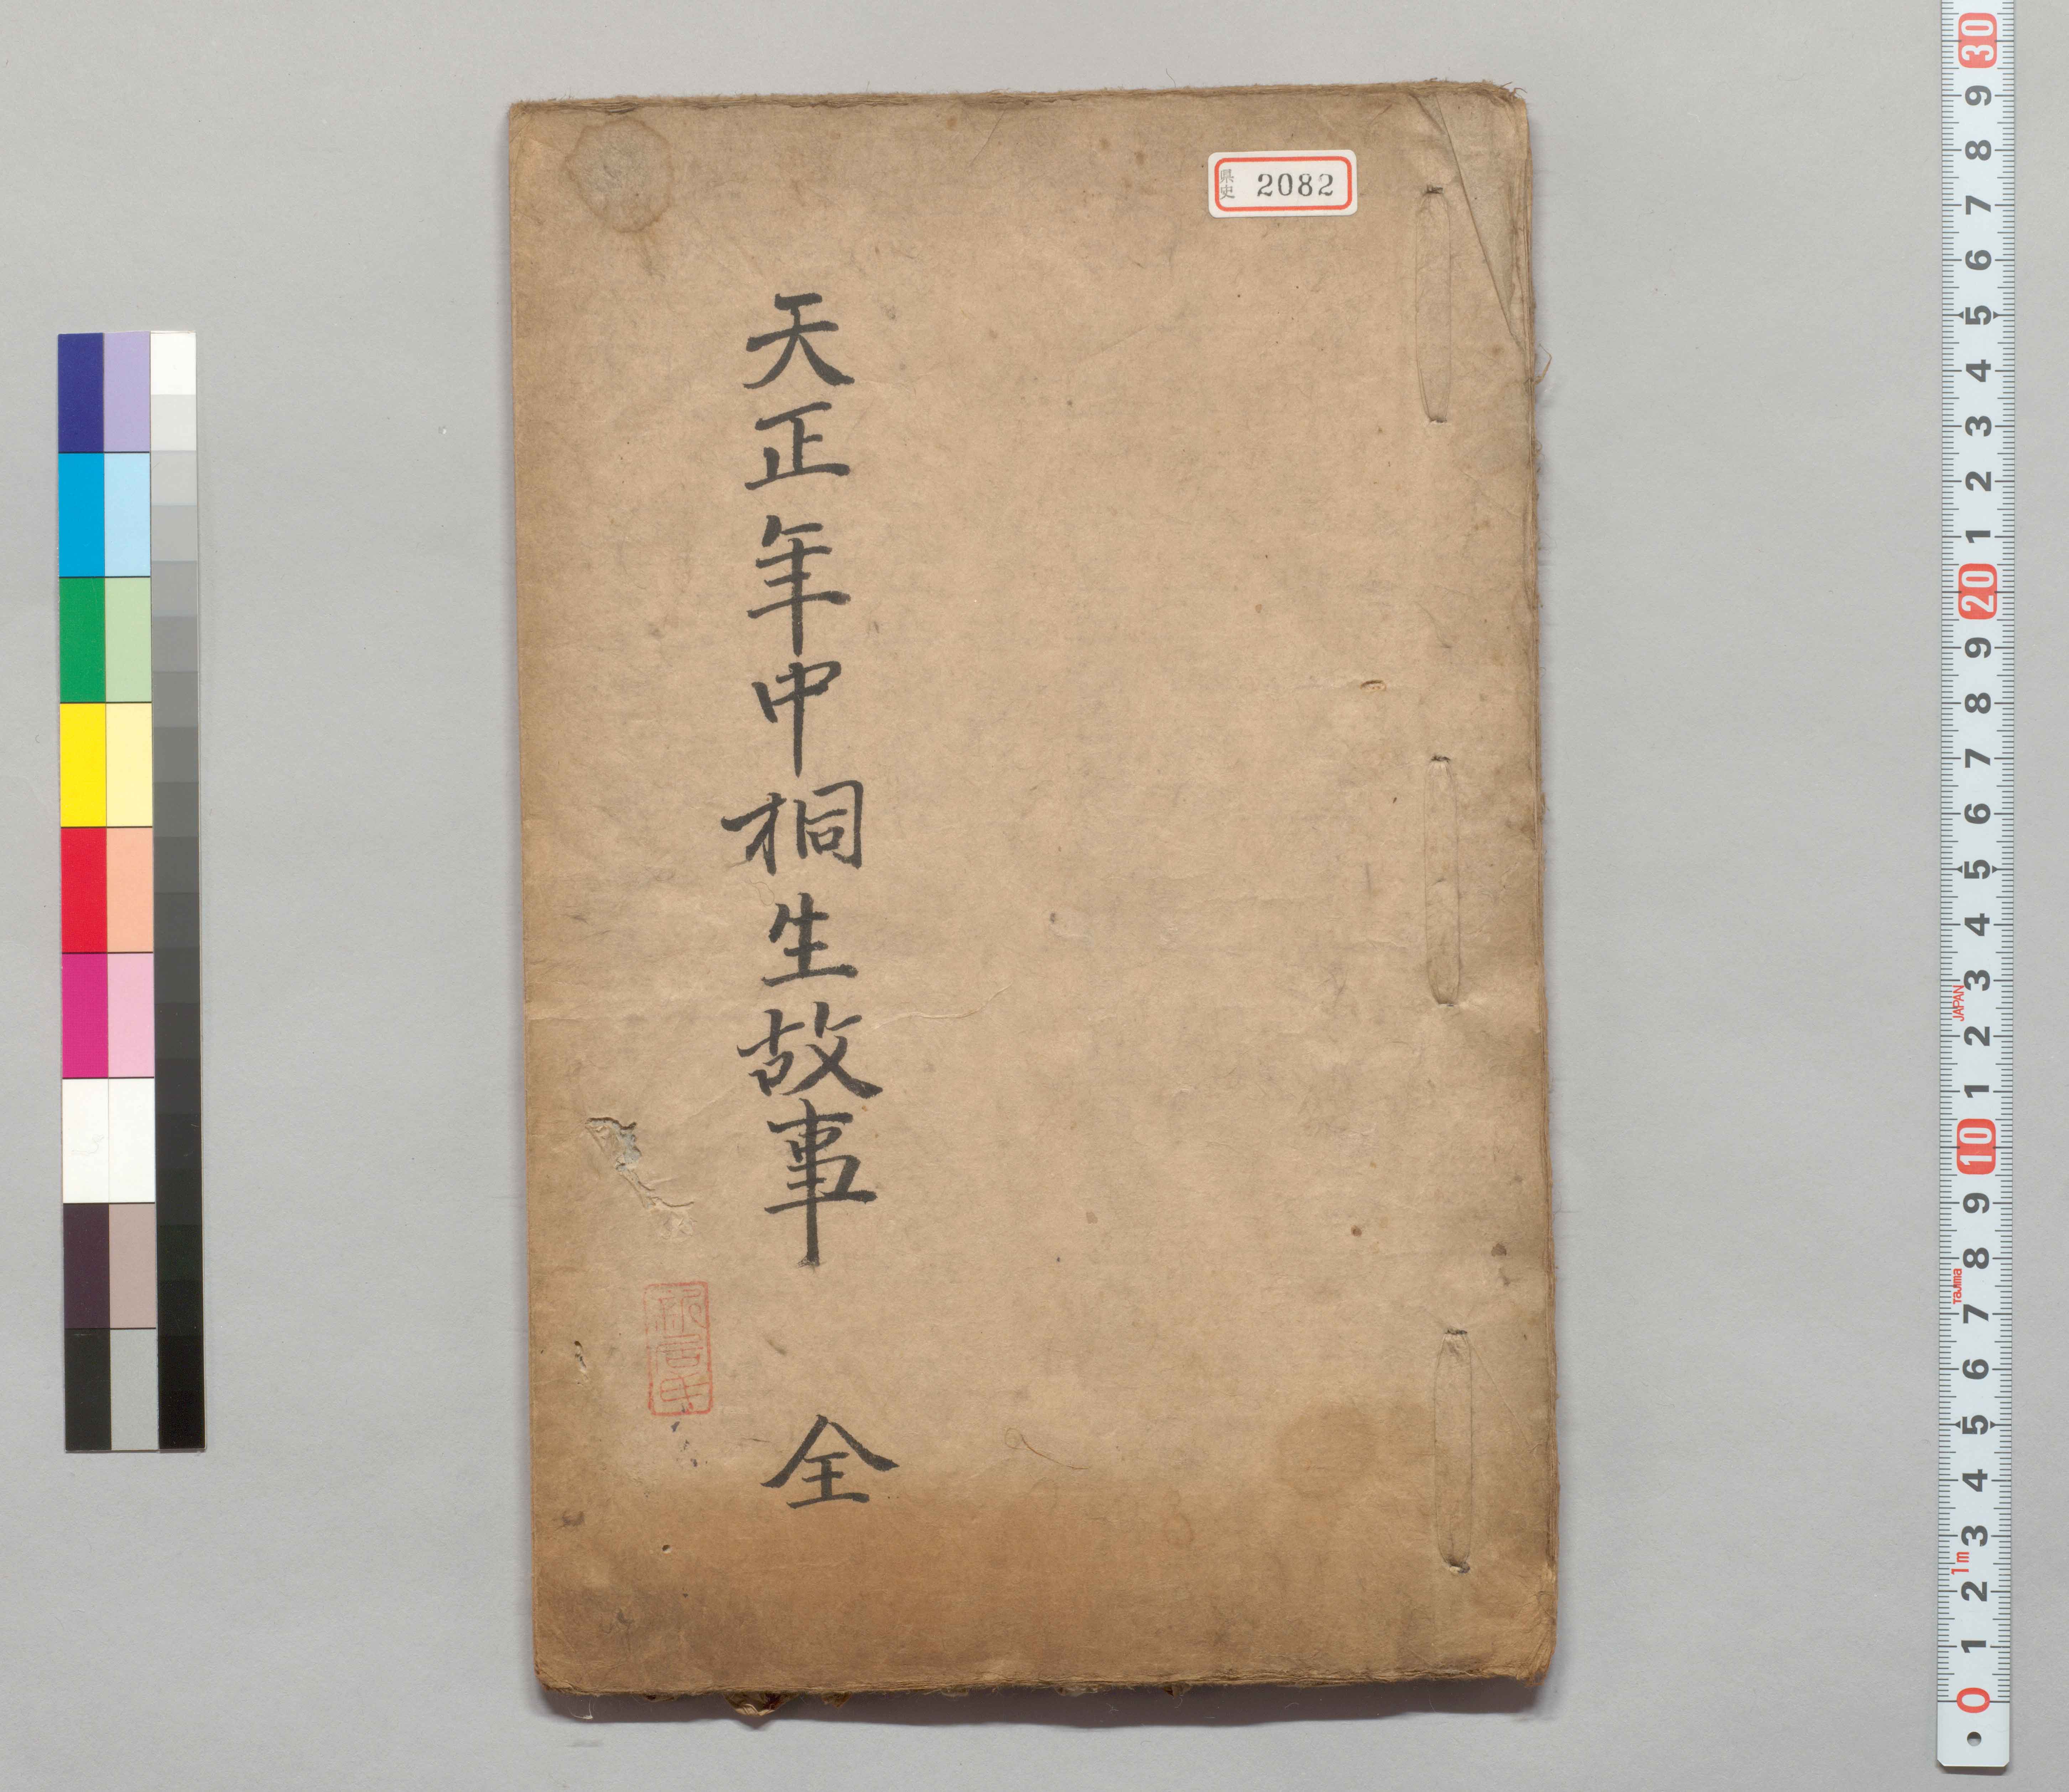 県史 2082
天正年中桐生故事 全
30
9
8
7
6
5
4
3
2
1
20
9
8
7
6
5
4
3
JAPAN
2
1
10
9
8
Tajima
7
6
5
4
3
1m
2
1
0